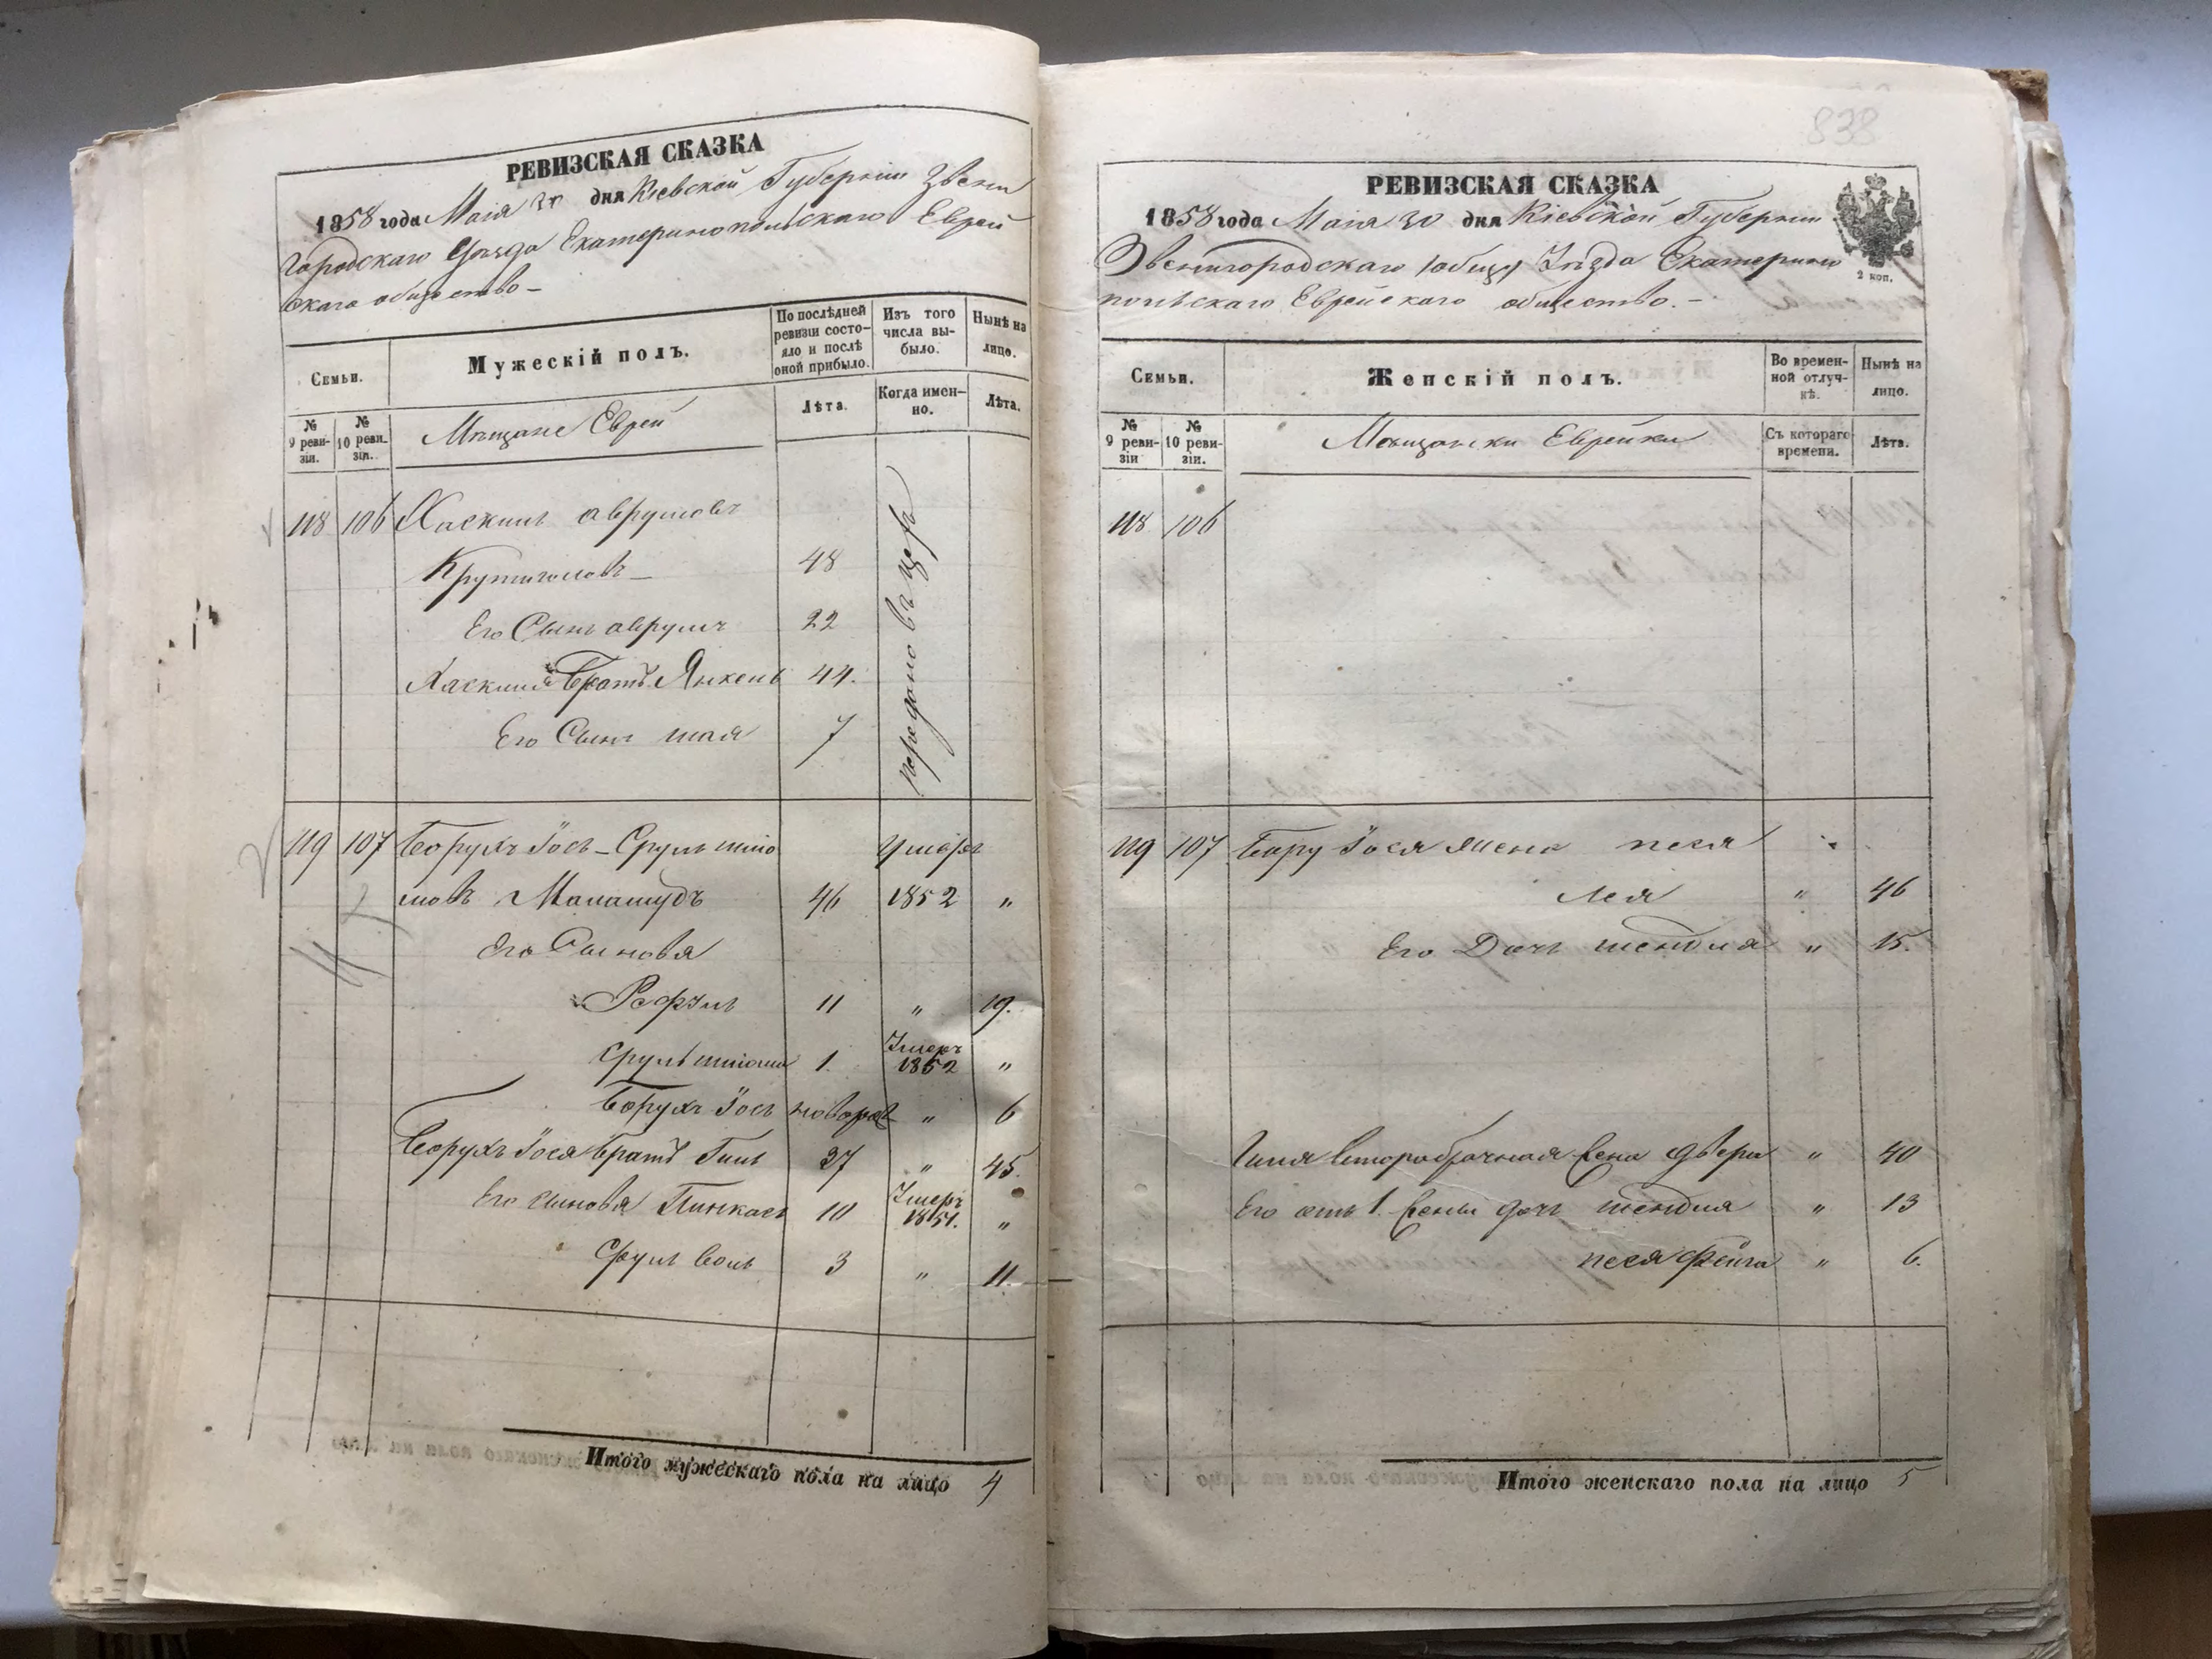 РЕВИЗСКАЯ СКАЗКА
1858 года Маія 30 дня Кіевской Губерніи Звени
городскаго Уѣзда Екатеринопольскаго Еврей
скаго общество –
Семьи.
Мужескій полъ.
По послѣдней ревизіи состояло и послѣ оной прибыло.
Изъ того числа выбыло.
Нынѣ на лицо.
№ 9 ревизіи.
№ 10 ревизіи.
Мѣщане Еврей
Лѣта.
Когда именно.
Лѣта.
118 106 Хаскиль Аврумовъ
Крупиголовъ – 48
Его Сынъ Аврумъ 22
Хаскиля Братъ Янкель 44.
Его Сынъ Шая 7
передано въ
119 107 Борухъ Іось – Сруль Шліо Умеръ
мовъ 46 1852 "
Его Сыновя
Рафуль 11 " 19.
Сруль Шліома 1. Умеръ 1852 "
Борухъ Іось новорож " 6
Борухъ Іося Братъ Гиль 37 " 45.
Его сыновя Пинкасъ 10 Умеръ 1851. "
Сруль Волъ 3 " 11.
Итого мужескаго пола на лицо 4
838
РЕВИЗСКАЯ СКАЗКА
1858 года Маія 30 дня Кіевской Губерніи
2 коп.
Звенигородскаго Уѣзда Екатерино
польскаго Еврейскаго общество. –
Семьи.
Женскій полъ.
Во временной отлучкѣ.
Нынѣ на лицо.
№ 9 ревизіи
№ 10 ревизіи.
Мѣщанки Еврейки
Съ котораго времени.
Лѣта.
118 106
119 107 Бару Іося Жена Песя
Лея " 46
Его Дочь Шендля " 15.
Гиля Второбрачная Жена Двера " 40
Его отъ 1. Жены дочь Шендля " 13
Песя Фейга " 6.
Итого женскаго пола на лицо 5